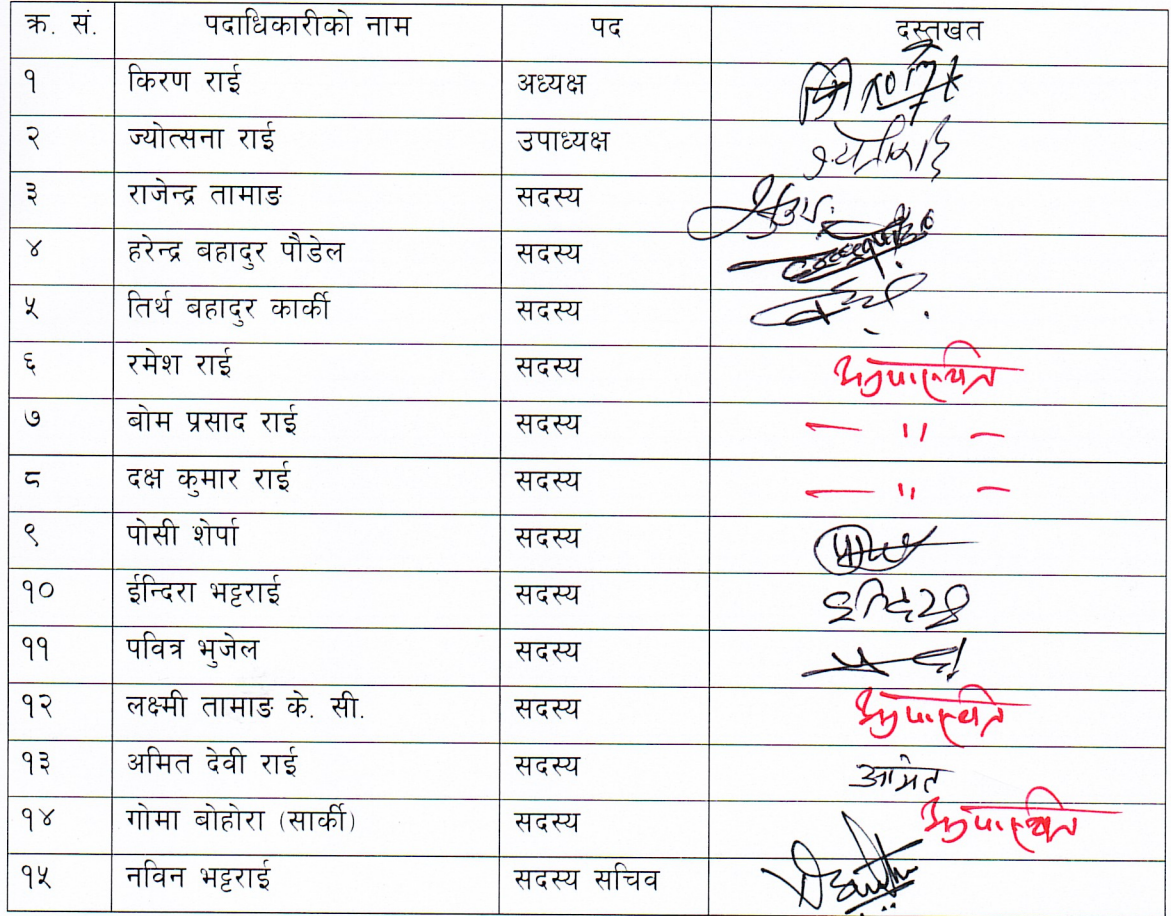 क्र. सं. पदाधिकारीको नाम पद दस्तखत
१ किरण राई अध्यक्ष
२ ज्योत्सना राई उपाध्यक्ष
३ राजेन्द्र तामाङ सदस्य
४ हरेन्द्र बहादुर पौडेल सदस्य
५ तिर्थ बहादुर कार्की सदस्य
६ रमेश राई सदस्य अनुपस्थित
७ बोम प्रसाद राई सदस्य — " —
८ दक्ष कुमार राई सदस्य — " —
९ पोसी शेर्पा सदस्य
१० ईन्दिरा भट्टराई सदस्य
११ पवित्र भुजेल सदस्य
१२ लक्ष्मी तामाङ के. सी. सदस्य अनुपस्थित
१३ अमित देवी राई सदस्य
१४ गोमा बोहोरा (सार्की) सदस्य अनुपस्थित
१५ नविन भट्टराई सदस्य सचिव